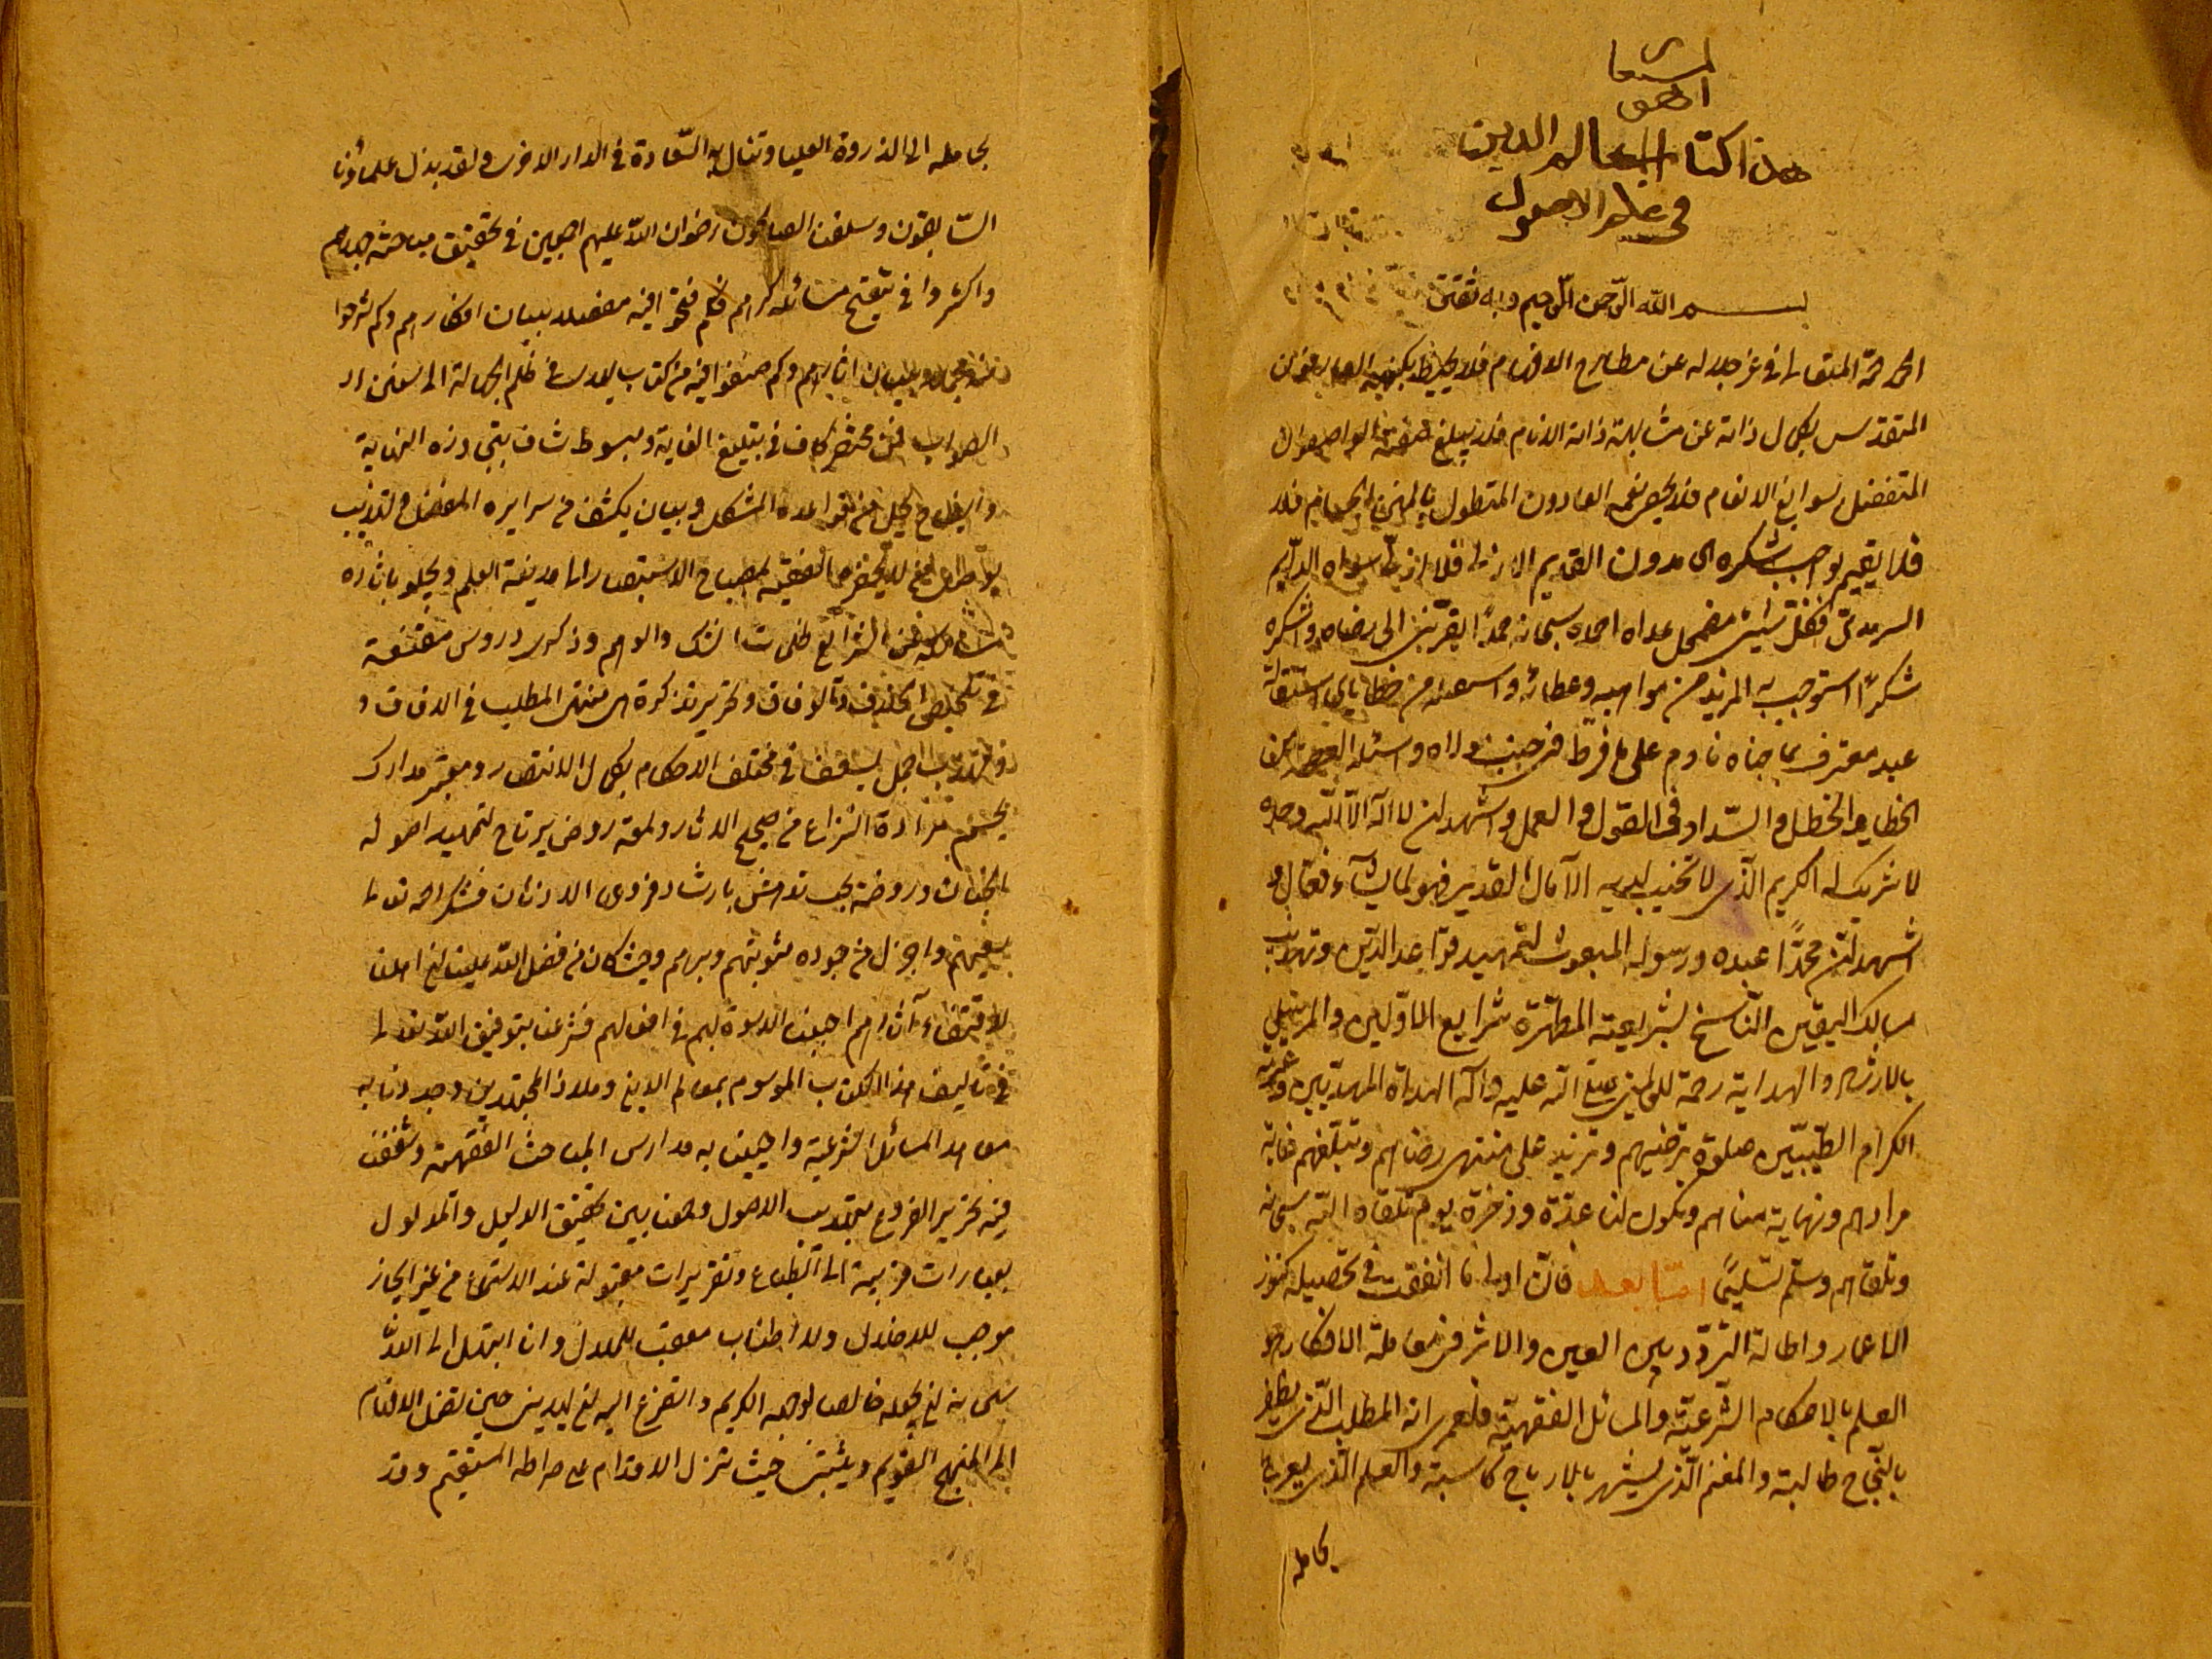 هذا كتاب معالم الدين
في علم الاصول
بسم الله الرّحمن الرّحيم وبه ثقتي
الحمد لله المتعالى في عز جلاله عن مطارح الافهام فلا يحيط بكنهه العارفون
المتقدس بكمال ذاته عن مشابهة ذاته الانام فلا يبلغ صفته الواصفون
المتفضل بسوابغ الانعام فلا يحصى نعمه العادون المتطول بالمنن الجسام فلا
فلا يقيم بواجب شكره الحامدون القديم الازلي فلا ازليّ سواه الدائم
السرمديّ فكل شيئ مضمحل عداه احمده سبحانه حمدًا يقرّبني الى رضاه واشكره
شكرًا استوجب به المزيد من مواهبه وعطائه واستقيله من خطاياي استقالة
عبد معترف بما جناه نادم على ما فرّط في جنب مولاه واسئله العصمة من
الخطاء والخطل والسّداد في القول والعمل واشهد ان لا اله الاّ اللّه وحده
لا شريك له الكريم الّذى لا تخيب لديه الآمال القدير فهو لما يشآء فعّال و
اشهد انّ محمّدًا عبده ورسوله المبعوث لتمهيد قواعد الدّين وتهذيب
مسالك اليقين النّاسخ بشريعته المطهّرة شرايع الاوّلين والمرسل
بالارشاد والهداية رحمة للعالمين صلى الله عليه وآله الهداة المهديّين وعترته
الكرام الطّيبّين صلوة ترضيهم وتزيد على منتهى رضاهم وتبلّغهم غاية
مرادهم ونهاية مناهم وتكون لنا عدّة وذخرة يوم نلقاه اللّه سبحانه
ونلقاهم وسلّم تسليمًا امّا بعد فانّ اولى ما انفقت في تحصيله كنوز
الاعمار واطالة التّردّد بين العين والاثر في معاملة الافكار هو
العلم بالاحكام الشّرعيّة والمسائل الفقهيّة فلعمرى انه المطلب الّذى يظفر
بالنّجاح طالبه والمغنم الّذى يبشر بالارباح كاسبه والعلم الّذى يعرج
بحامله
بحامله الى الذروة العليا وتنال به السّعادة في الدار الاخرى ولقد بذل علماؤنا
السّابقون وسلفنا الصالحون رضوان اللّه عليهم اجمعين في تحقيق مباحثه جهدهم
واكثروا في تنقيح مسائله كدهم فكم فتحوا فيه مقفلا ببيان افكارهم وكم شرحوا
منه مجملا ببيان آثارهم وكم صنفوا فيه من كتاب يهدى في ظلم الجهالة الى سنن ال
الصواب فمن مختصر كاف في تبليغ الغاية ومبسوط شاف بتجاوزه النهاية
وايضاح يحل من قواعده المشكل وبيان يكشف من سرايره المعضل وتهذيب
يوصل من لا يحضره الفقيه بمصباح الاستبصار الى مدينة العلم ويجلو بانارة
مسالكه عن الشرايع ظلمات الشك والوهم وذكرى دروس مقنعة
في تلخيص الخلاف والوفاق وتحرير تذكرة هى منتهى المطلب في الافاق و
ومهذب جمل يسعف في مختلف الاحكام بكمال الانتصار ومعتبر مدارك
يحسم مواد النزاع من صحيح الاثار ولمعة روض يرتاح لتمهيد اصوله
الجنان وروضة بحث تدهش بارشاد فروعها الاذهان فشكر الله تعالى
سعيهم واجزل من جوده مثوبتهم وبرهم وحيث كان من فضل اللّه علينا ان اهلنا
لاقتفاء آثارهم احببنا الاسوة بهم في افعالهم فشرعنا بتوفيق اللّه تعالى
في تأليف هذا الكتاب الموسوم بمعالم الدين وملاذ المجتهدين وجددنا به
معاهد المسائل الشرعية واحيينا به مدارس المباحث الفقهية وشفعنا
فيه تحرير الفروع بتهذيب الاصول وجمعنا بين تحقيق الدليل والمدلول
بعبارات قريبة الى الطباع وتقريرات مقبولة عند الاستماع من غير ايجاز
موجب للاخلال ولا اطناب معقب للملال وانا ابتهل الى اللّه
سبحانه ان يجعله خالصا لوجهه الكريم واتضرع اليه ان يهديني حين تضل الافهام
الى المنهج القويم ويثبتني حيث تزل الاقدام على صراطه المستقيم وقد